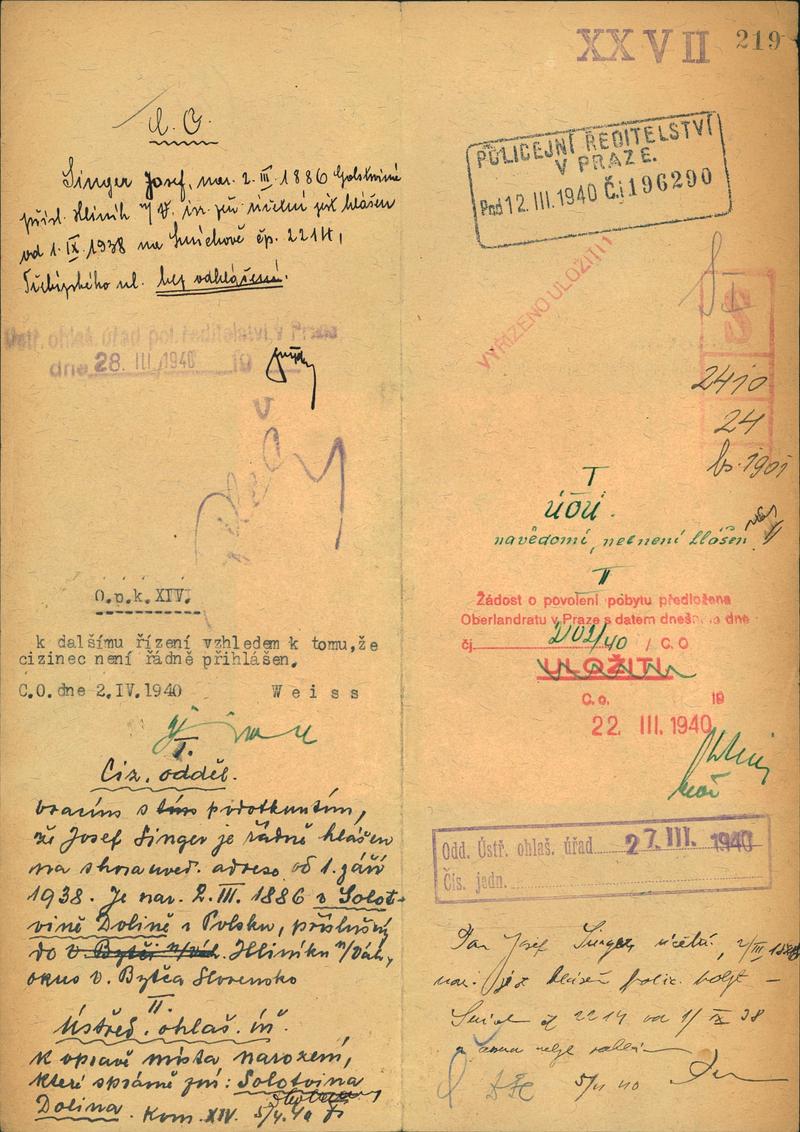 C. O.
Singer Josef, nar. 2. III. 1886 Golotvina
přísl. Hliník n/V. in. zdů účetní jest hlášen
od 1. IX. 1938 na Smíchově čp. 2214,
Třebízského ul. bez odhlášení.
Ústř. ohlaš. úřad pol. ředitelství v Praze
dne 28. III. 1940 19
O.p.k. XIV.
k dalšímu řízení vzhledem k tomu,že
cizinec není řádně přihlášen.
C.O. dne 2.IV.1940 Weiss
I.
Ciz. odděl.
vracím s tím podotknutím,
že Josef Singer je řádně hlášen
na shora uved. adrese od 1. září
1938. Je nar. 2. III. 1886 v Solot-
vině Dolině v Polsku, příslušný
do v Bytči n/Váh. Hliníku n/Váh,
okres v. Bytča Slovensko
II.
Ústřed. ohlaš. úř.
k opravě místa narození,
které správně zní: Solotvina
Dolina. Kom. XIV. 5/4. 40
XXVII 219
POLICEJNÍ ŘEDITELSTVÍ
V PRAZE.
Pod 12. III. 1940 Č.j. 196290
VYŘÍZENO ULOŽITI!
S
2410
24
bs. 1901
I
ÚOÚ.
na vědomí, není hlášen
II
Žádost o povolení pobytu předložena
Oberlandratu v Praze s datem dneš. dne
čj. 2102/40 / C. O
ULOŽITI.
C. o. 19
22. III. 1940
Odd. Ústř. ohlaš. úřad 27. III. 1940
Čís. jedn.
Pan Josef Singer účetní, 2/III 1886
nar. jest hlášen polic.
Smích. čp 2214 od 1/IX 38
5/4 40